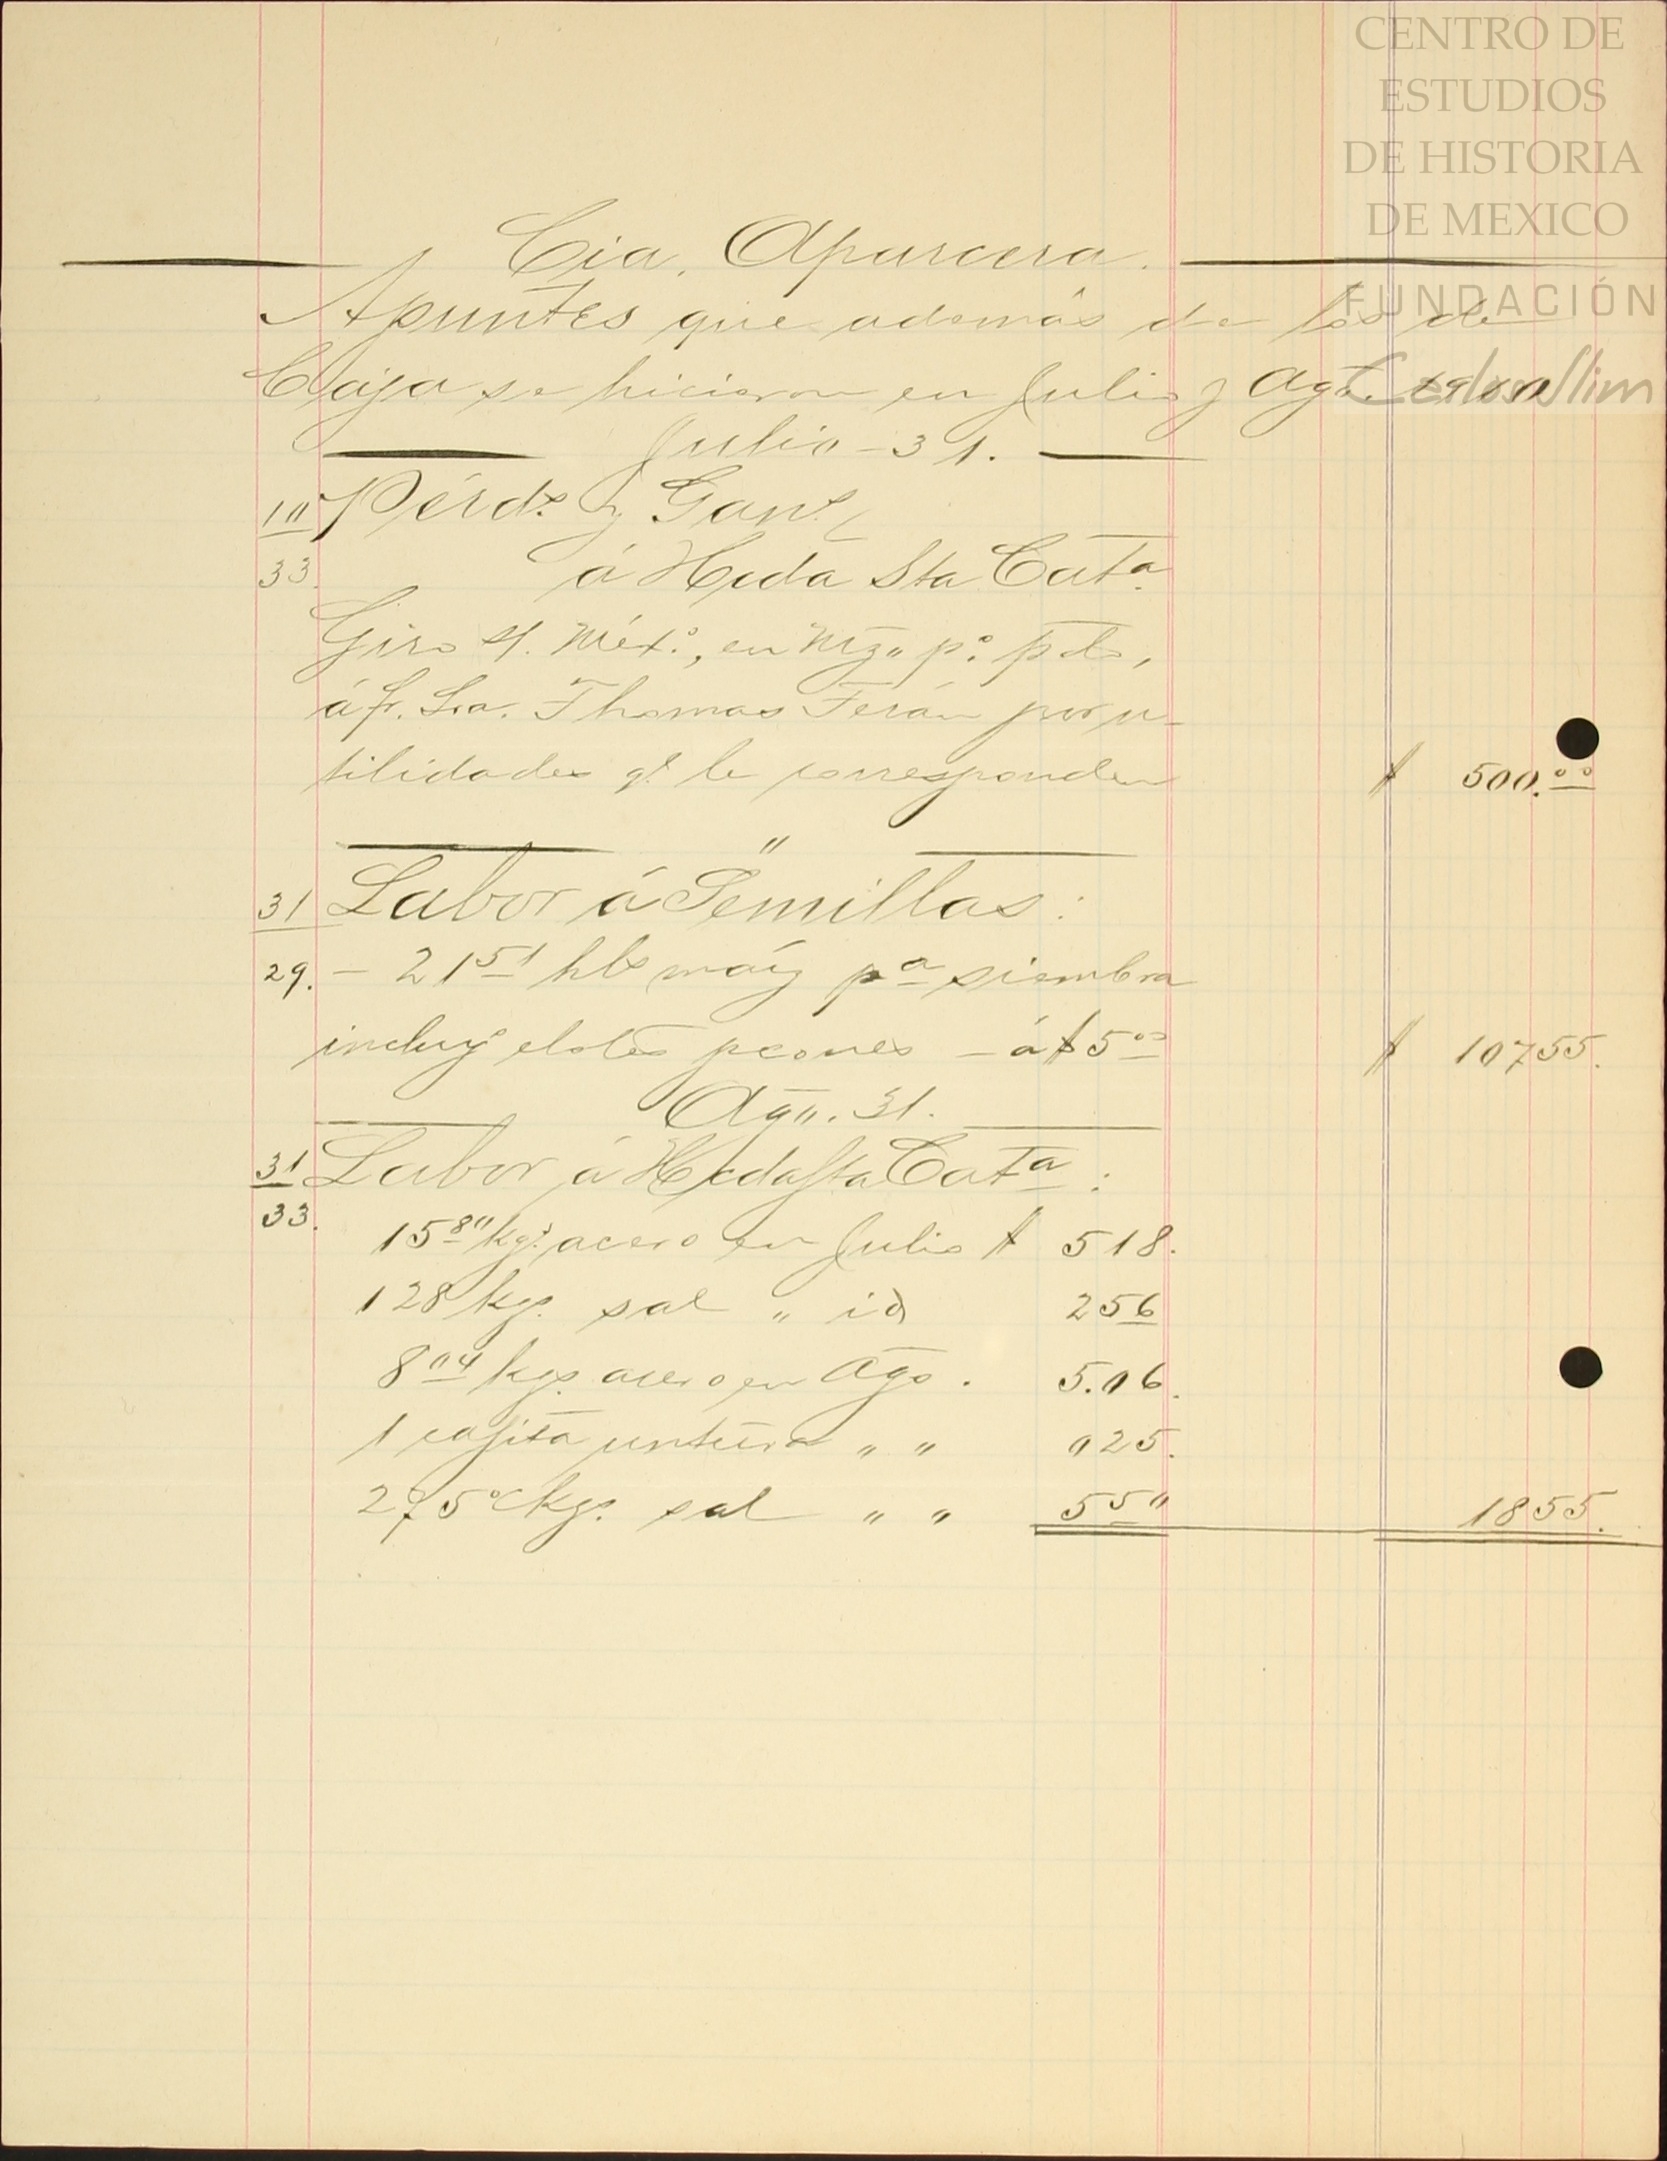 CENTRO DE
ESTUDIOS
DE HISTORIA
DE MEXICO
FUNDACIÓN
Carlos Slim
Cía. Aparcera.
Apuntes que además de los de
Caja se hicieron en Julio y Agt.
Julio - 31.
10 Pérds. y Gans.
33. á Hcda Sta Cata.
Giro s/. Méx.º, en Mzo pº. pdo,
á fr. Sra. Thomas Terán por u-
tilidades q.e le corresponden $ 500.00
"
31 Labor á Semillas:
29. - 21 51 hls maíz pa siembra
incluye elotes peones - á $ 5 00 $ 10755.
Ago. 31.
31 Labor á Hcda Sta Cata:
33.
15 80 kgs. acero en Julio $ 518.
128 kgs. sal " id 256
8 04 kgs. acero en Ago. 5.06.
1 cajita untura " " 025.
275 kgs. sal " " 550 1855.